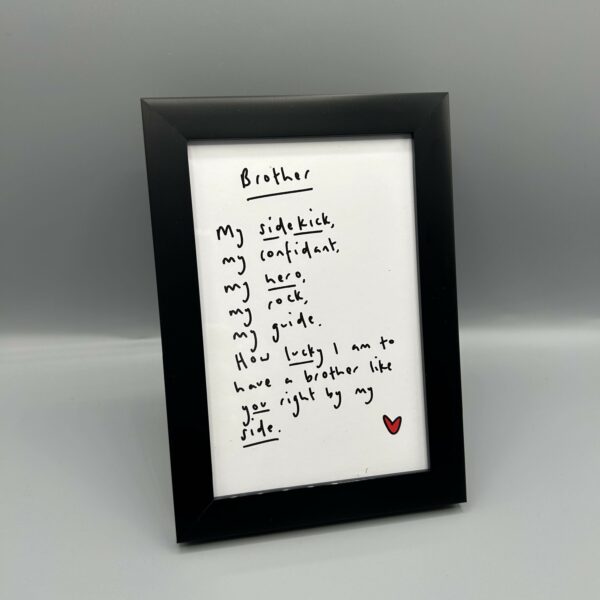 Brother
My sidekick,
my confidant,
my hero,
my rock,
my guide.
How lucky I am to
have a brother like
you right by my
side.